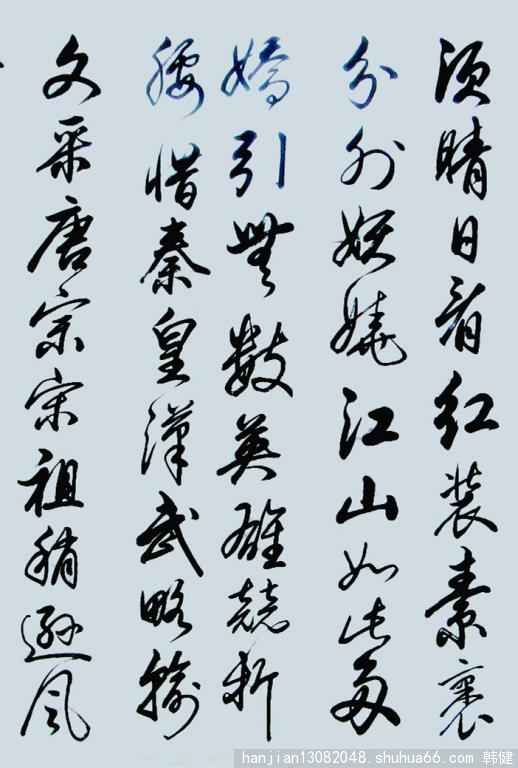 须晴日看红装素裹
分外妖娆江山如此多
嬌引無数英雄競折
腰惜秦皇漢武略输
文采唐宗宋祖稍遜风
hanjian13082048. shuhua66. com 韩健